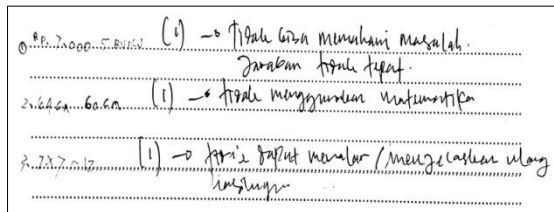 ① RP. 7.000 5 (1) → tidak bisa memahami masalah.
Jawaban tidak tepat.
2. (1) → tidak menggunakan matematika
3. 7x7 = 12 (1) → dapat menalar / menjelaskan ulang